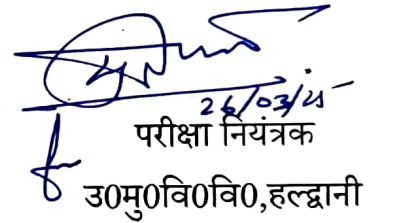 26/03/25
परीक्षा नियंत्रक
उ0मु0वि0वि0,हल्द्वानी